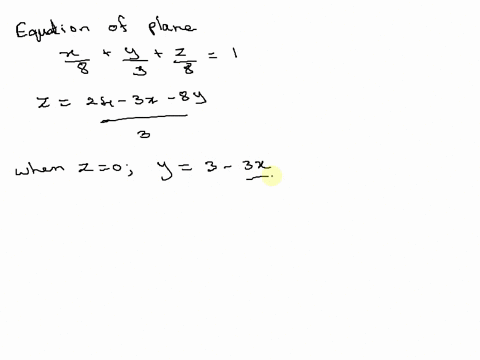 Equation of plane
x/8 + y/3 + z/8 = 1
z = 24 - 3x - 8y / 3
when z = 0; y = 3 - 3x